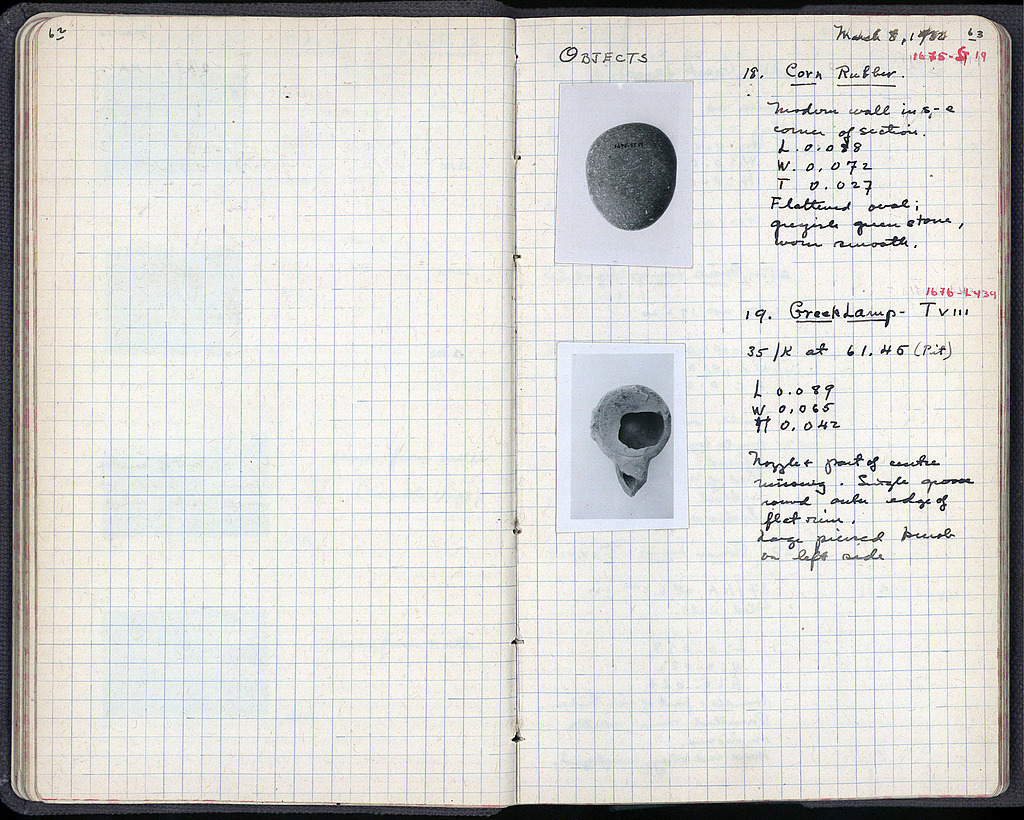 62
March 8, 19
63
OBJECTS
1675-ST 19
18. Corn Rubber.
Modern wall in s,-e
corner of section.
L. 0.088
W. 0.072
T 0.027
Flattened oval;
greyish green stone,
worn smooth.
1676-L439
19. Greek Lamp- T VIII
35/K at 61.45 (Pit)
L 0.089
W 0.065
H 0.042
Nozzle & part of centre
missing. Single groove
round outer edge of
flat rim.
Large pierced knob
on left side